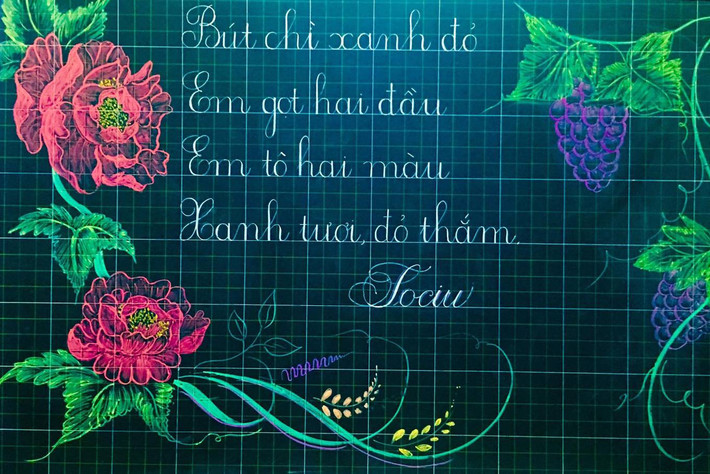 Bút chì xanh đỏ
Em gọt hai đầu
Em tô hai màu
Xanh tươi, đỏ thắm.
Tociu